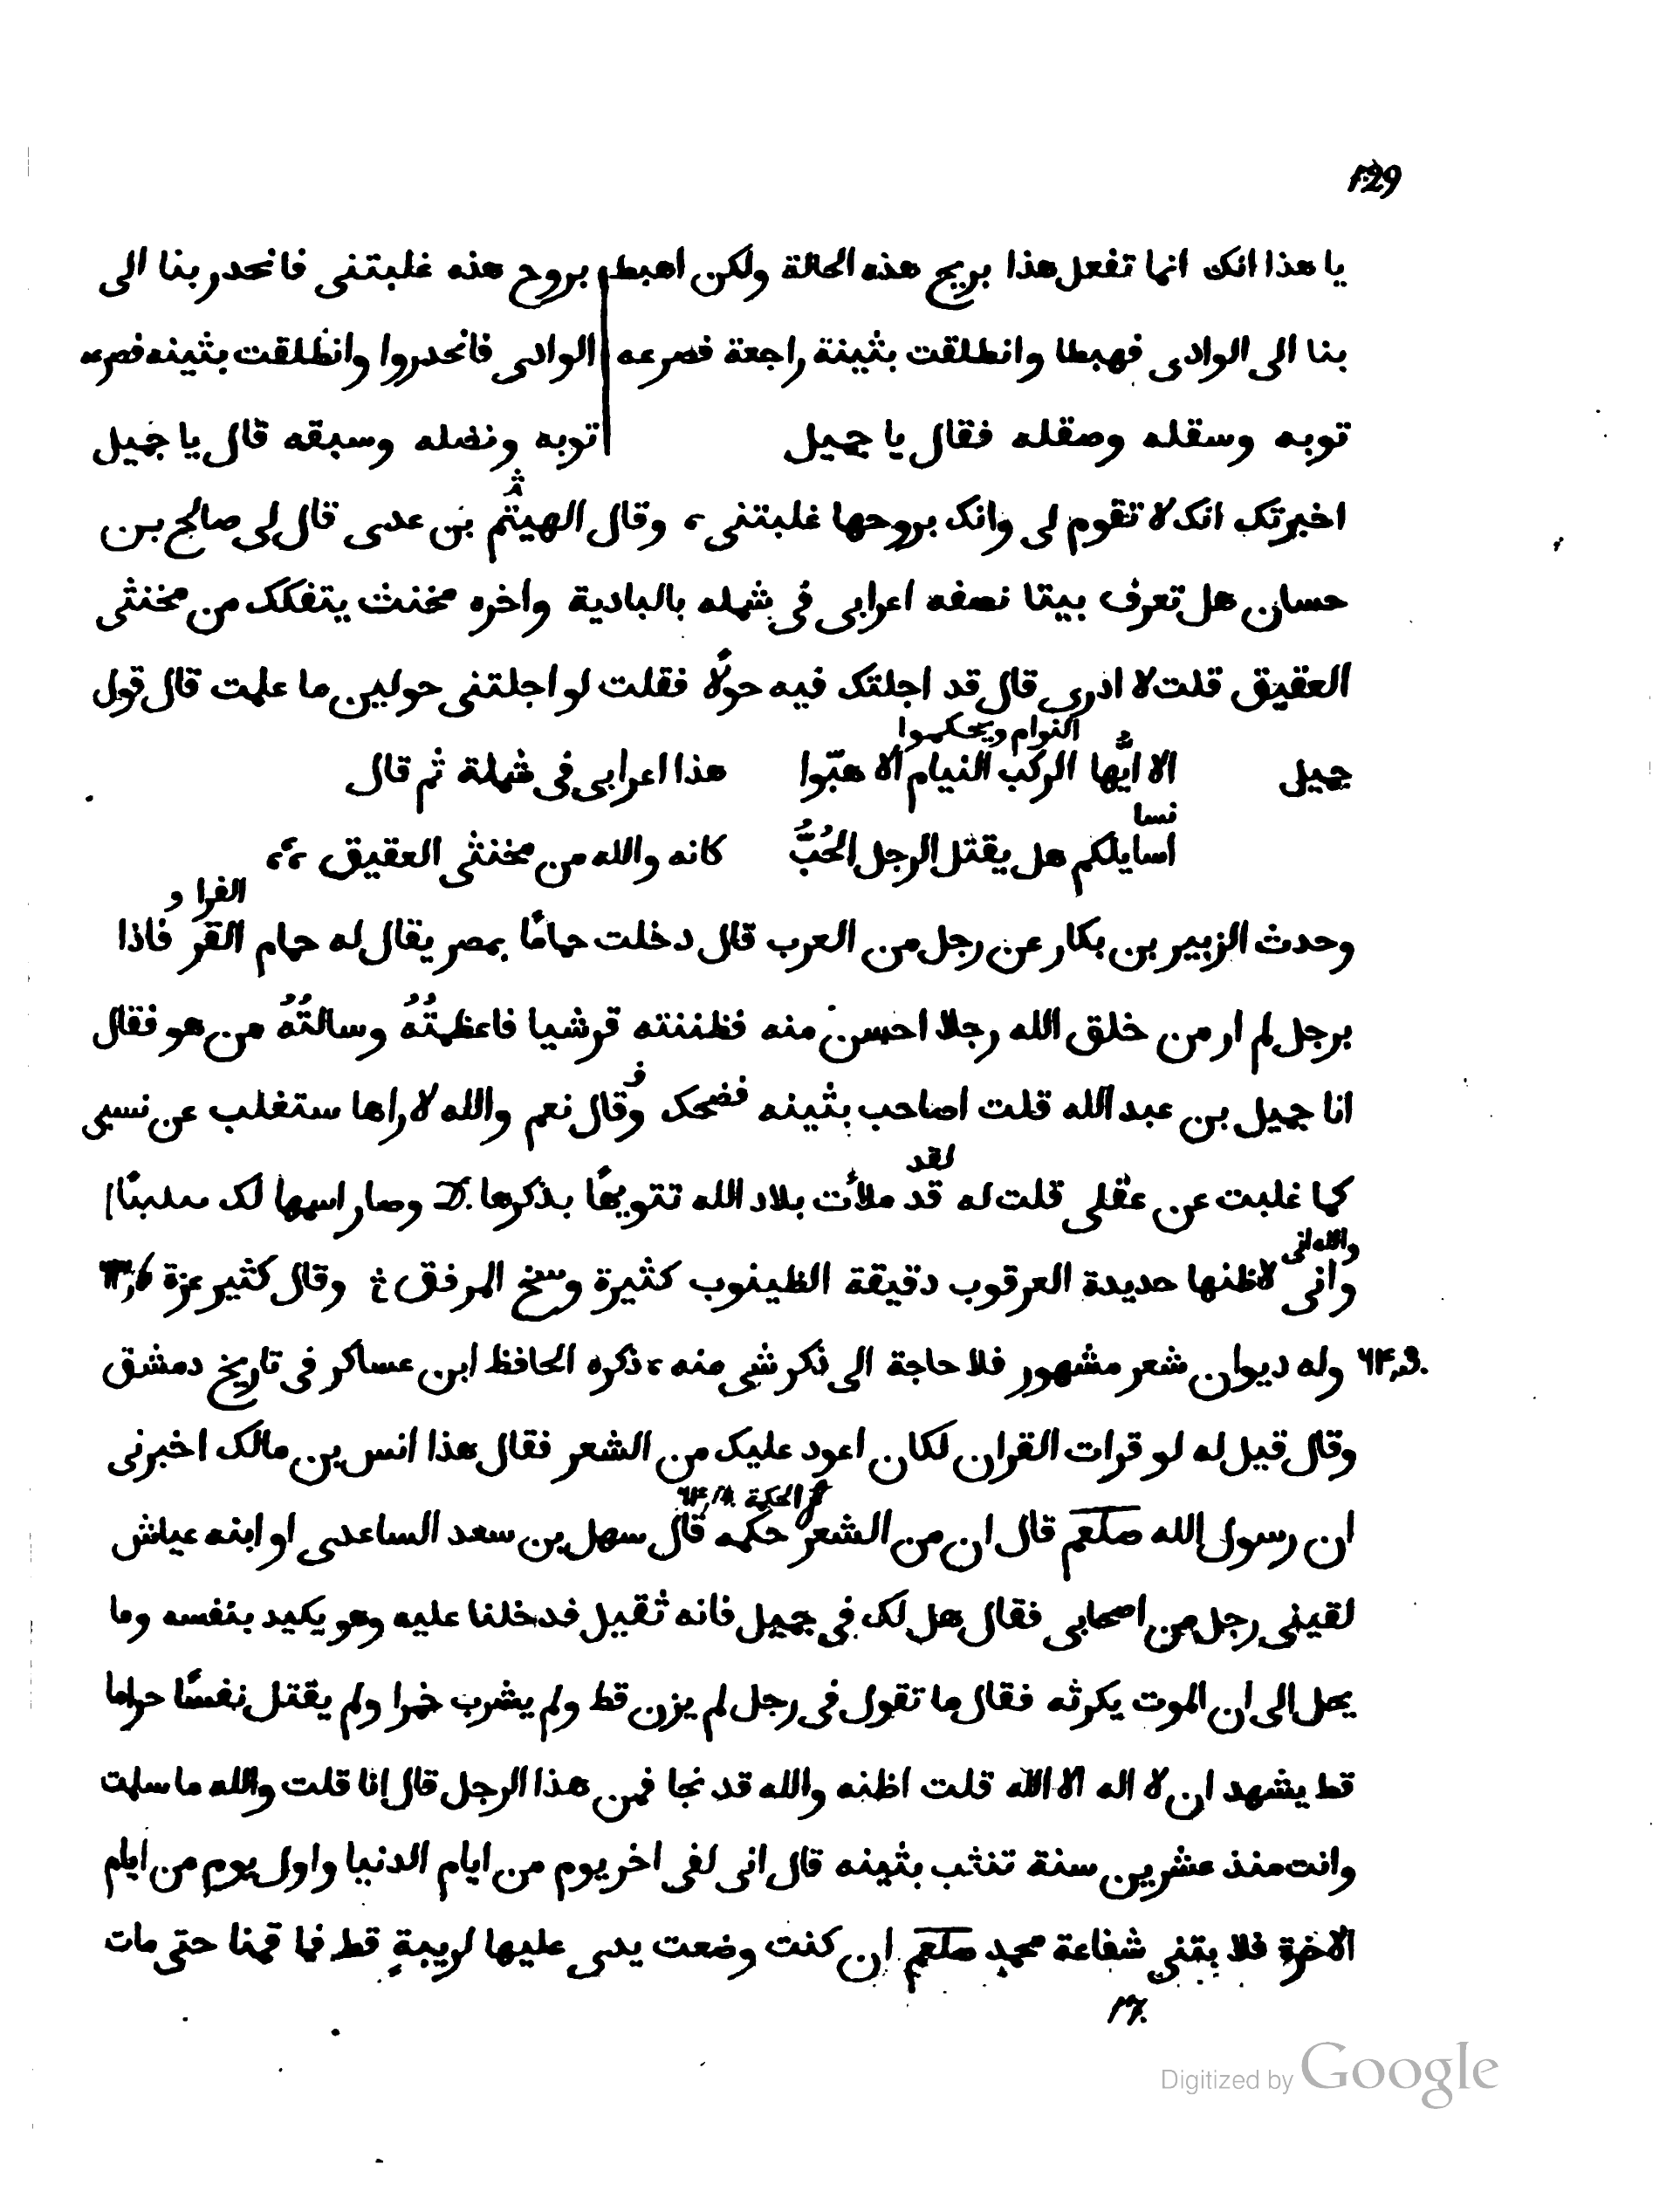 129
يا هذا انك انما تفعل هذا بريح هذه الحالة ولكن اهبط بروح هذه غلبتنى فانحدر بنا الى
بنا الى الوادى فهبطا وانطلقت بثينة راجعة فصرعه الوادى فانحدروا وانطلقت بثينه فصرعه
توبه وسقله وصقله فقال يا جميل توبه ونضله وسبقه قال يا جميل
اخبرتك انك لا تقوم لى وانك بروحها غلبتنى، وقال الهيثم بن عدى قال لى صالح بن
حسان هل تعرف بيتا نصفه اعرابى فى شمله بالبادية واخره مخنث يتفكك من مخنثى
العقيق قلت لا ادرى قال قد اجلتك فيه حولًا فقلت لو اجلتنى حولين ما علمت قال قول
النوام ويحكموا
جميل الا ايّها الركب النيام الا هبّوا هذا اعرابى فى شملة ثم قال
نسا
اسايلكم هل يقتل الرجل الحُبُّ كانه والله من مخنثى العقيق،،
الفرا و
وحدث الزبير بن بكار عن رجل من العرب قال دخلت حمامًا بمصر يقال له حمام القر فاذا
برجل لم ار من خلق الله رجلا احسن منه فظننته قرشيا فاعظمتُهُ وسالتُهُ من هو فقال
انا جميل بن عبد الله قلت اصاحب بثينه فضحك وقال نعم والله لاراها ستغلب عن نسبى
لقد
كما غلبت عن عقلى قلت له قد ملأت بلاد الله تنويهًا بذكرها وصار اسمها لك
والله انى
وانى لاظنها حديدة العرقوب دقيقة الظينوب كثيرة وسخ المرفق وقال كثير عزة
وله ديوان شعر مشهور فلا حاجة الى ذكر شى منه، ذكره الحافظ ابن عساكر فى تاريخ دمشق
وقال قيل له لو قرات القران لكان اعود عليك من الشعر فقال هذا انس بن مالك اخبرنى
الحكمة
ان رسول الله صلعم قال ان من الشعر حكمه قال سهل بن سعد الساعدى او ابنه عياش
لقينى رجل من اصحابى فقال هل لك فى جميل فانه ثقيل فدخلنا عليه وهو يكيد بنفسه وما
يحل الى ان الموت يكرثه فقال ما تقول فى رجل لم يزن قط ولم يشرب خمرا ولم يقتل نفسًا حراما
قط يشهد ان لا اله الا الله قلت اظنه والله قد نجا فمن هذا الرجل قال انا قلت والله ما سلمت
وانت منذ عشرين سنة تنثب بثينه قال انى لفى اخر يوم من ايام الدنيا واول يوم من ايام
الاخرة فلا شفاعة محمد صلعم ان كنت وضعت يدى عليها لريبةٍ قط فما قمنا حتى مات
Digitized by Google